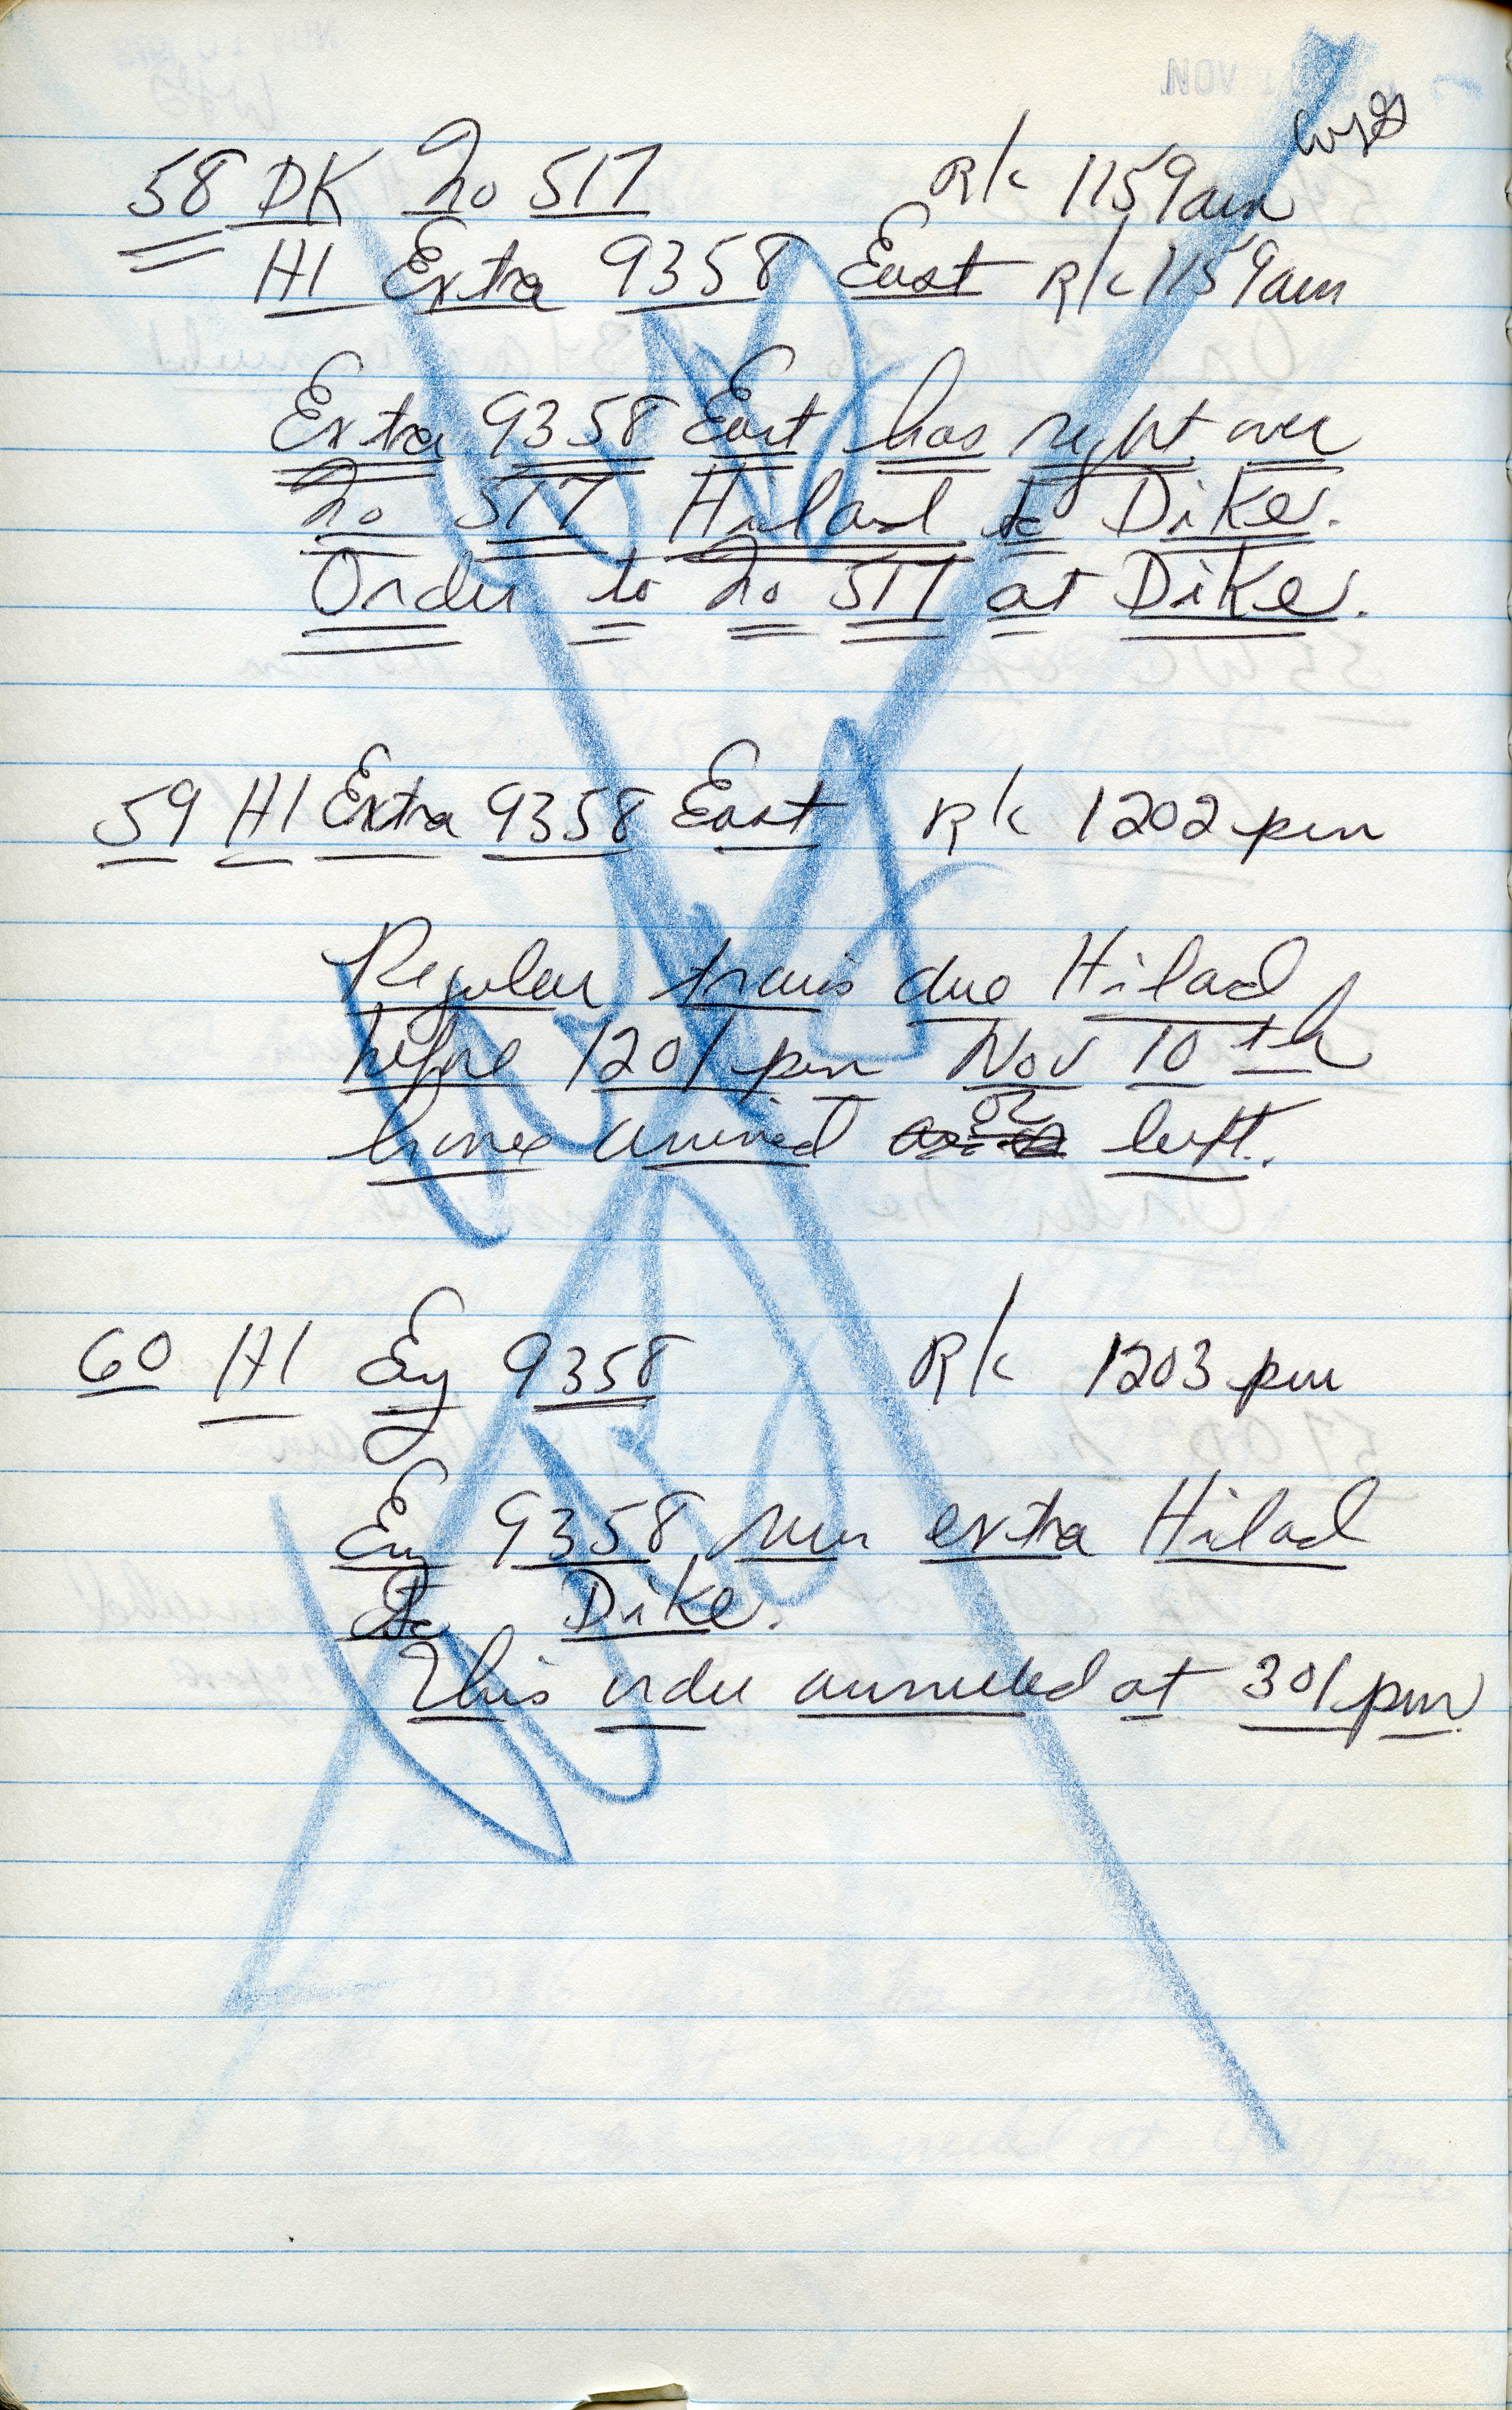 58 DK No 517 R/c 1159am
H1 Extra 9358 East R/c 1159am
Extra 9358 East has right over
No 517 Hilad to Dike.
Order to No 517 at Dike.
59 H1 Extra 9358 East R/c 1202 pm
Regular trains due Hilad
before 1201 pm Nov 10th
have arrived or left.
60 H1 Eng 9358 R/c 1203 pm
Eng 9358 run extra Hilad
to Dike.
This order annulled at 301 pm